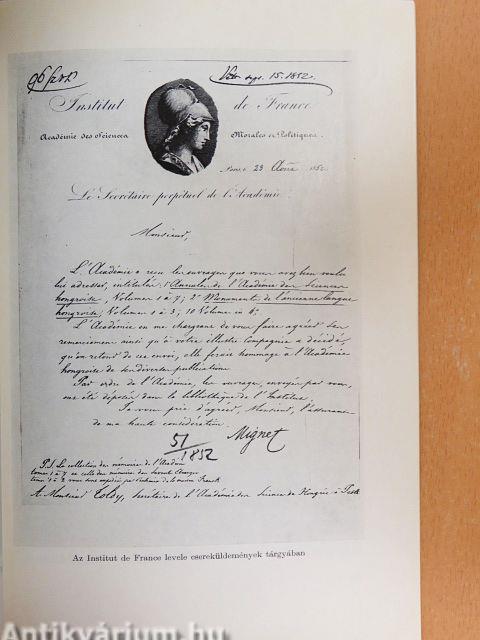 Institut de France
Académie des Sciences Morales et Politiques.
Paris, 23 Août 1852
Le Secrétaire perpétuel de l'Académie
Monsieur,
L'Académie a reçu les ouvrages que vous avez bien voulu
lui adresser, intitulés: 1° Annales de l'Académie des Sciences
hongroise, Volumes 1 à 7; 2° Monuments de l'ancienne langue
hongroise, Volumes 1 à 3, 10 Volumes in 8°
L'Académie en me chargeant de vous faire agréer ses
remerciements ainsi qu'à votre illustre Compagnie a décidé,
qu'en retour de ces envois, elle ferait hommage à l'Académie
hongroise de ses diverses publications.
Par ordre de l'Académie, les ouvrages envoyés par vous,
ont été déposés dans la bibliothèque de l'Institut.
Je vous prie d'agréer, Monsieur, l'assurance
de ma haute considération.
Mignet
51/1852
P.S. La collection des mémoires de l'Académie
tomes 1 à 7 et celle des mémoires des Savants
tomes 1 à 2 vous sont expédiés par
A Monsieur Toldy, Secrétaire de l'Académie des Sciences de Hongrie à Pesth
Az Institut de France levele csereküldemények tárgyában
Antikvárium.hu